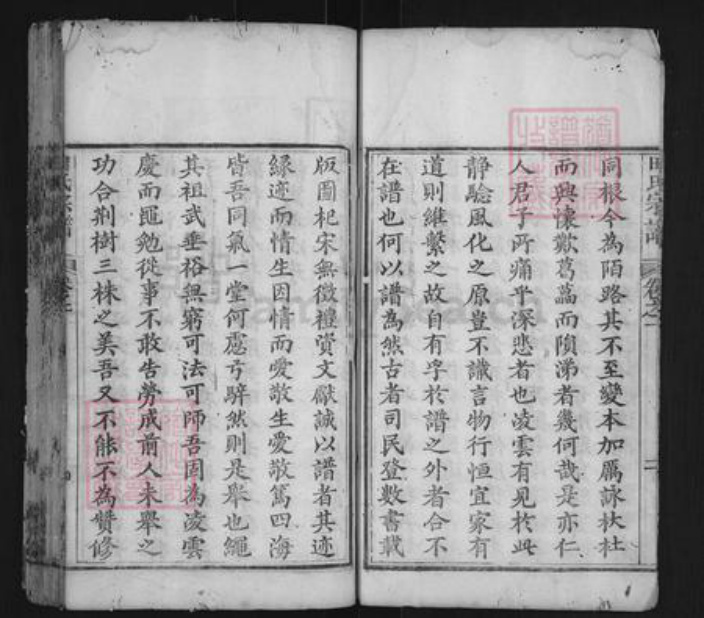 同根今為陌路其不至變本加厲詠杕杜
而興懷歎葛藟而隕涕者幾何哉是亦仁
人君子所痛乎深悲者也凌雲有見於此
靜驗風化之原豈不識言物行恒宜家有
道則維繫之故自有孚於譜之外者合不
在譜也何以譜為然古者司民登數書載
版圖杞宋無徵禮資文獻誠以譜者其迹
緣迹而情生因情而愛敬生愛敬篤四海
皆吾同氣一堂何慝弓騂然則是舉也繩
其祖武垂裕無窮可法可師吾固為凌雲
慶而黽勉從事不敢告勞成前人未舉之
功合荊樹三株之美吾又不能不為贊修
氏宗譜